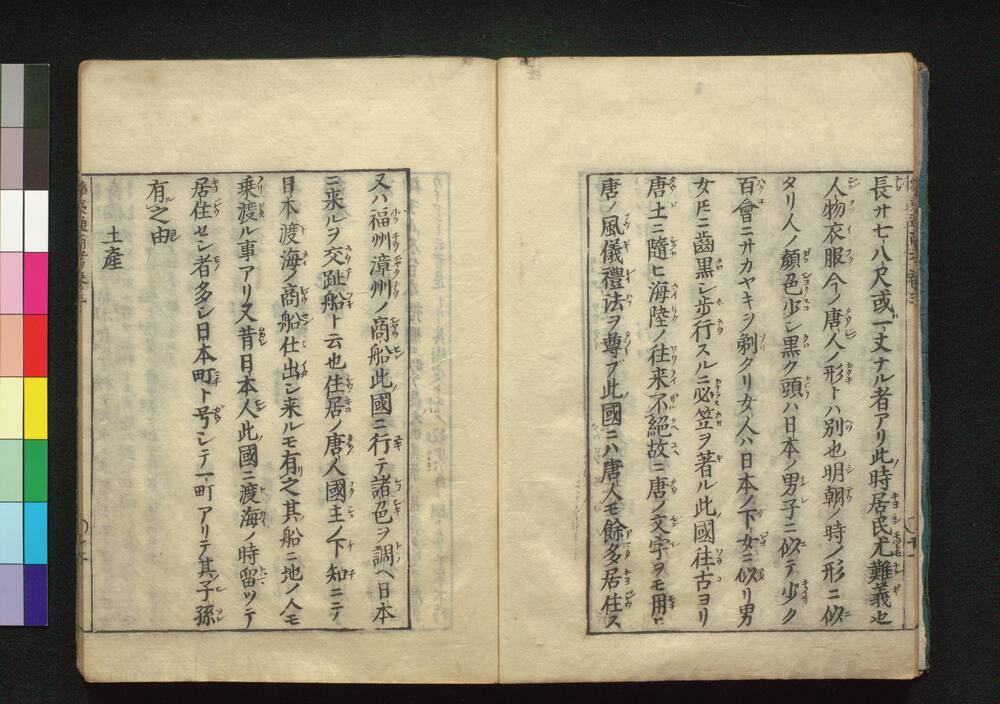 長サ七八尺或ハ一丈ナル者アリ此時居民尤難義也
人物衣服今ノ唐人ノ形トハ別也明朝ノ時ノ形ニ似
タリ人ノ顔色少シ黒ク頭ハ日本ノ男子ニ似テ少ク
百會ニサカヤキヲ剃タリ女人ハ日本ノ下女ニ似リ男
女𪜈ニ齒黒シ歩行スルニ必笠ヲ著ル此國往古ヨリ
唐土ニ隨ヒ海陸ノ往来不絕故ニ唐ノ文字ヲモ用ヒ
唐ノ風儀禮法ヲ尊ブ此國ニハ唐人モ餘多居住ス
又ハ福州漳州ノ商船此國ニ行テ諸色ヲ調ヘ日本
ニ来ルヲ交趾船ト云也住居ノ唐人國主ノ下知ニテ
日本渡海ノ商船仕出シ来ルモ有之其船ニ地ノ人モ
乗渡ル事アリ又昔日本人此國ニ渡海ノ時留ツテ
居住セシ者多シ日本町ト号シテ一町アリテ其子孫
有之由
土産